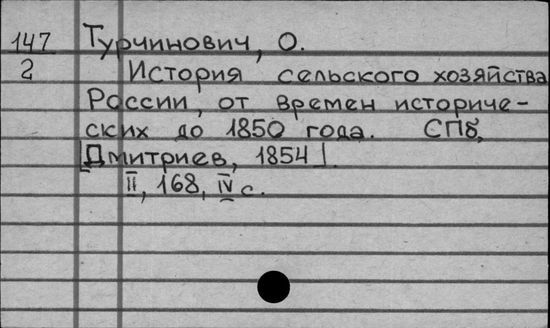 147 Турчинович, О.
2 История сельского хозяйства
России, от времен историче-
ских до 1850 года. СПб,
[Дмитриев, 1854].
II, 168, IV с.